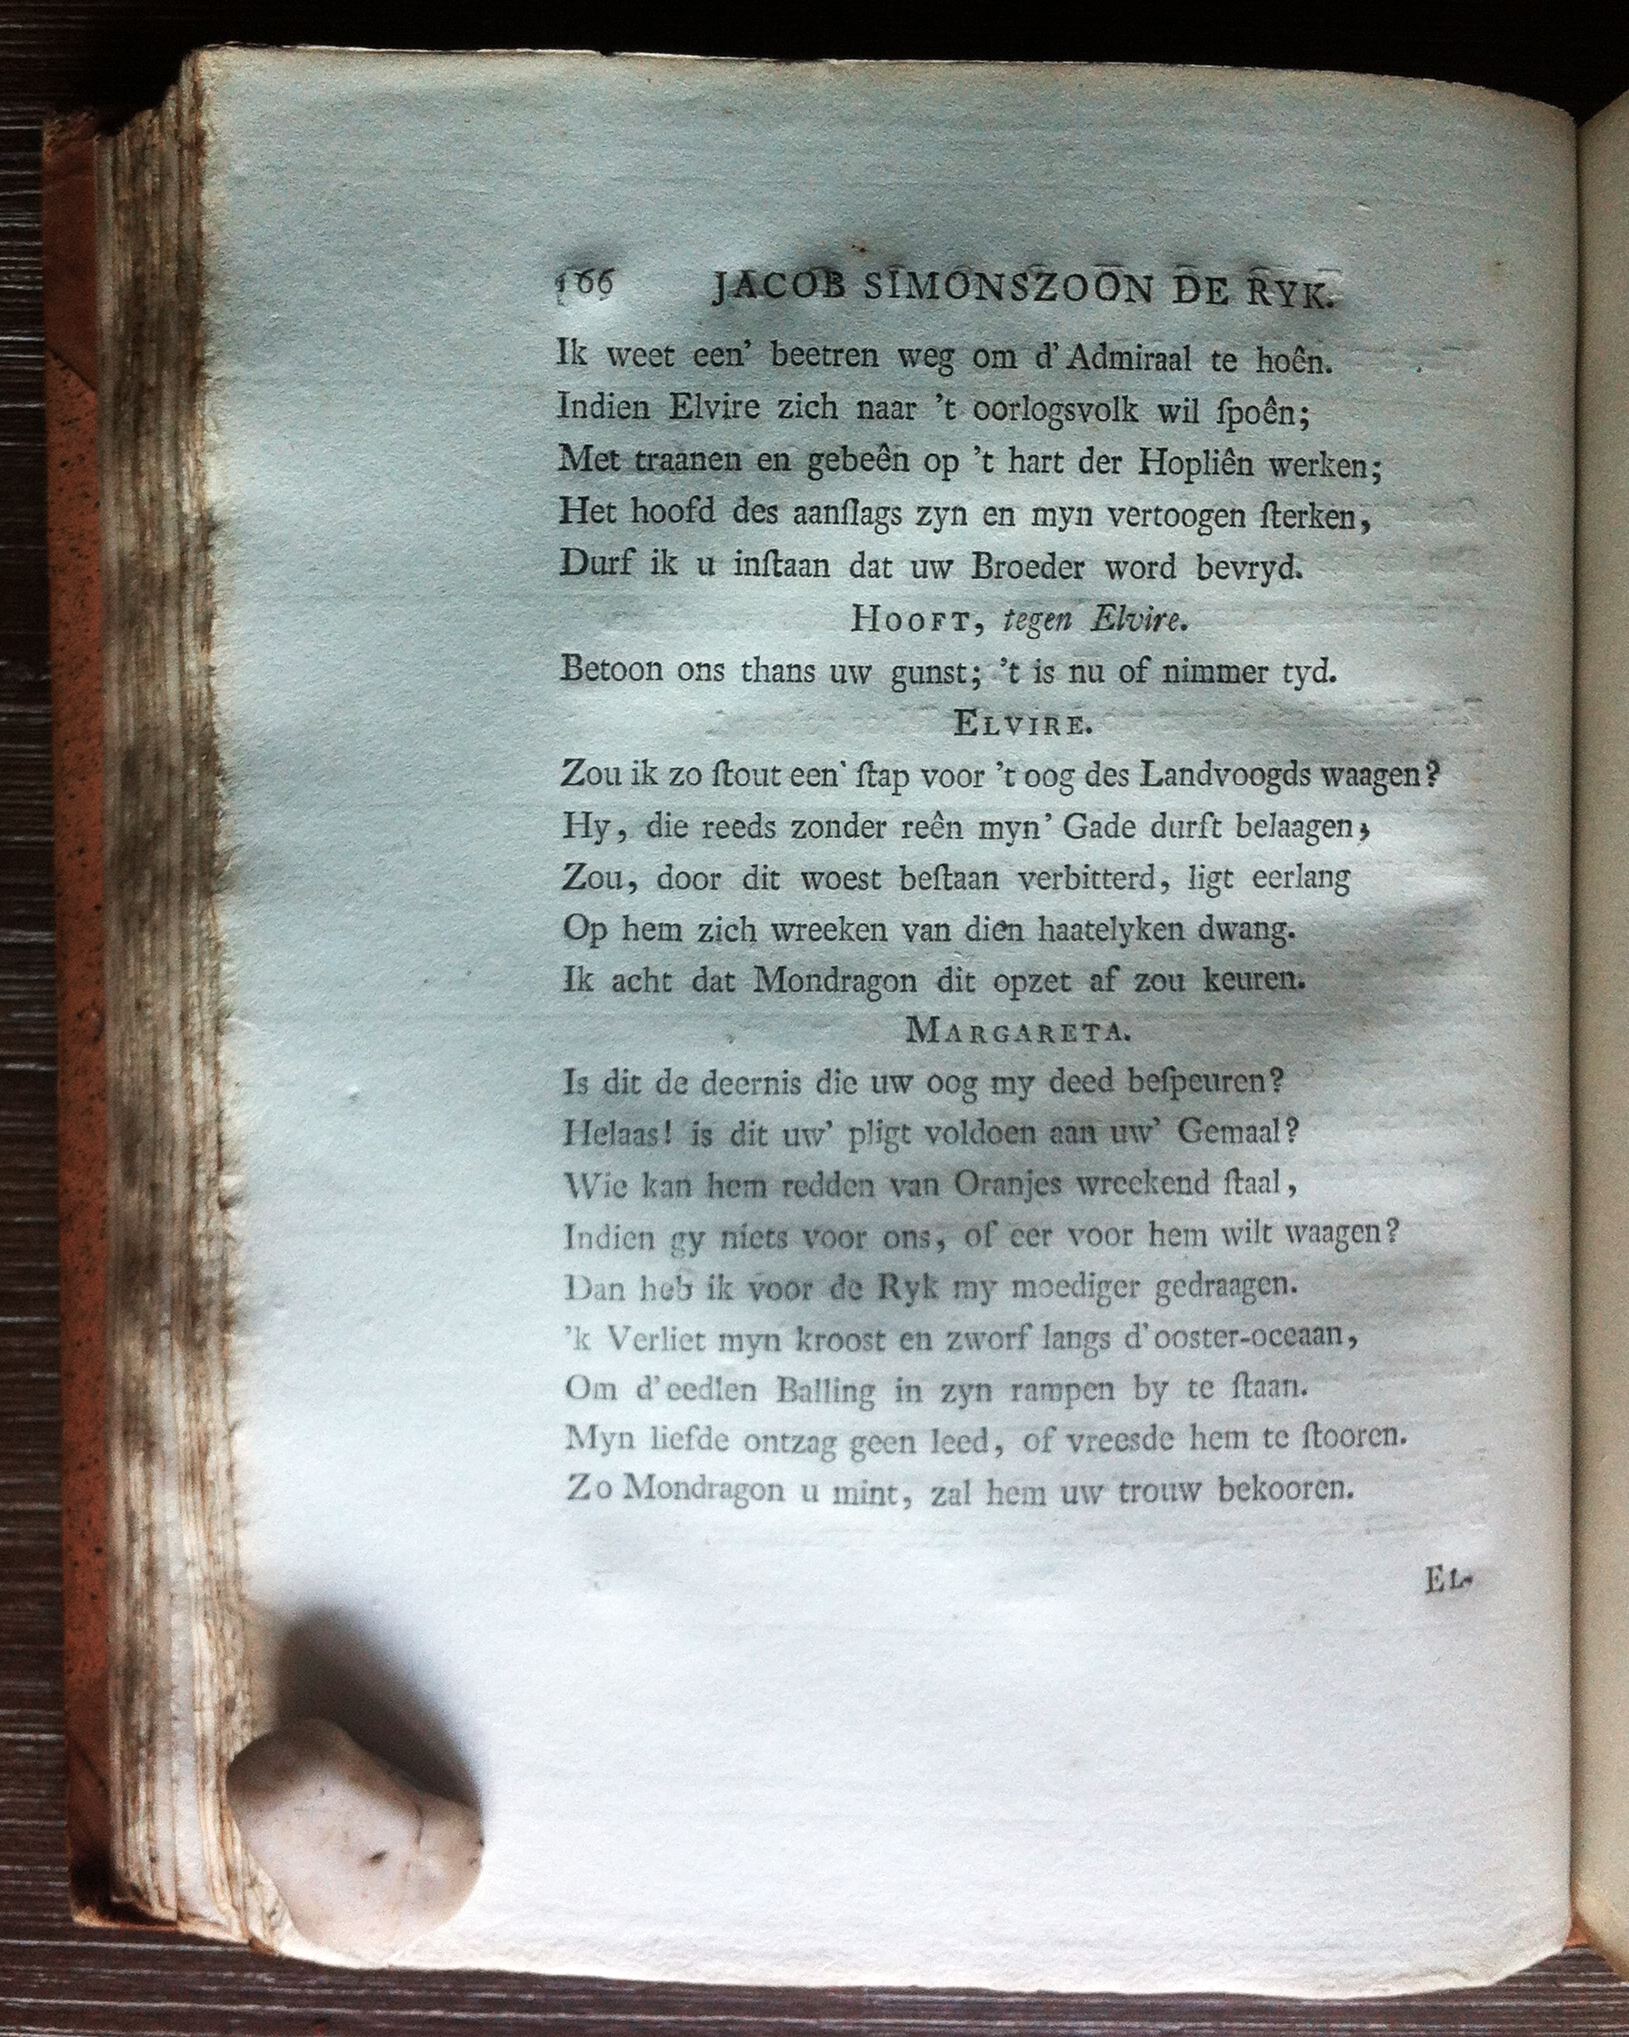 166 JACOB SIMONSZOON DE RYK.
Ik weet een’ beetren weg om d’Admiraal te hoên.
Indien Elvire zich naar ’t oorlogsvolk wil ſpoên;
Met traanen en gebeên op ’t hart der Hopliên werken;
Het hoofd des aanſlags zyn en myn vertoogen ſterken,
Durf ik u inſtaan dat uw Broeder word bevryd.
HOOFT, tegen Elvire.
Betoon ons thans uw gunst; ’t is nu of nimmer tyd.
ELVIRE.
Zou ik zo ſtout een’ ſtap voor ’t oog des Landvoogds waagen?
Hy, die reeds zonder reên myn’ Gade durft belaagen,
Zou, door dit woest beſtaan verbitterd, ligt eerlang
Op hem zich wreeken van dien haatelyken dwang.
Ik acht dat Mondragon dit opzet af zou keuren.
MARGARETA.
Is dit de deernis die uw oog my deed beſpeuren?
Helaas! is dit uw’ pligt voldoen aan uw’ Gemaal?
Wie kan hem redden van Oranjes wreekend ſtaal,
Indien gy niets voor ons, of eer voor hem wilt waagen?
Dan heb ik voor de Ryk my moediger gedraagen.
’k Verliet myn kroost en zworf langs d’ooster-oceaan,
Om d’eedlen Balling in zyn rampen by te ſtaan.
Myn liefde ontzag geen leed, of vreesde hem te ſtooren.
Zo Mondragon u mint, zal hem uw trouw bekooren.
EL-